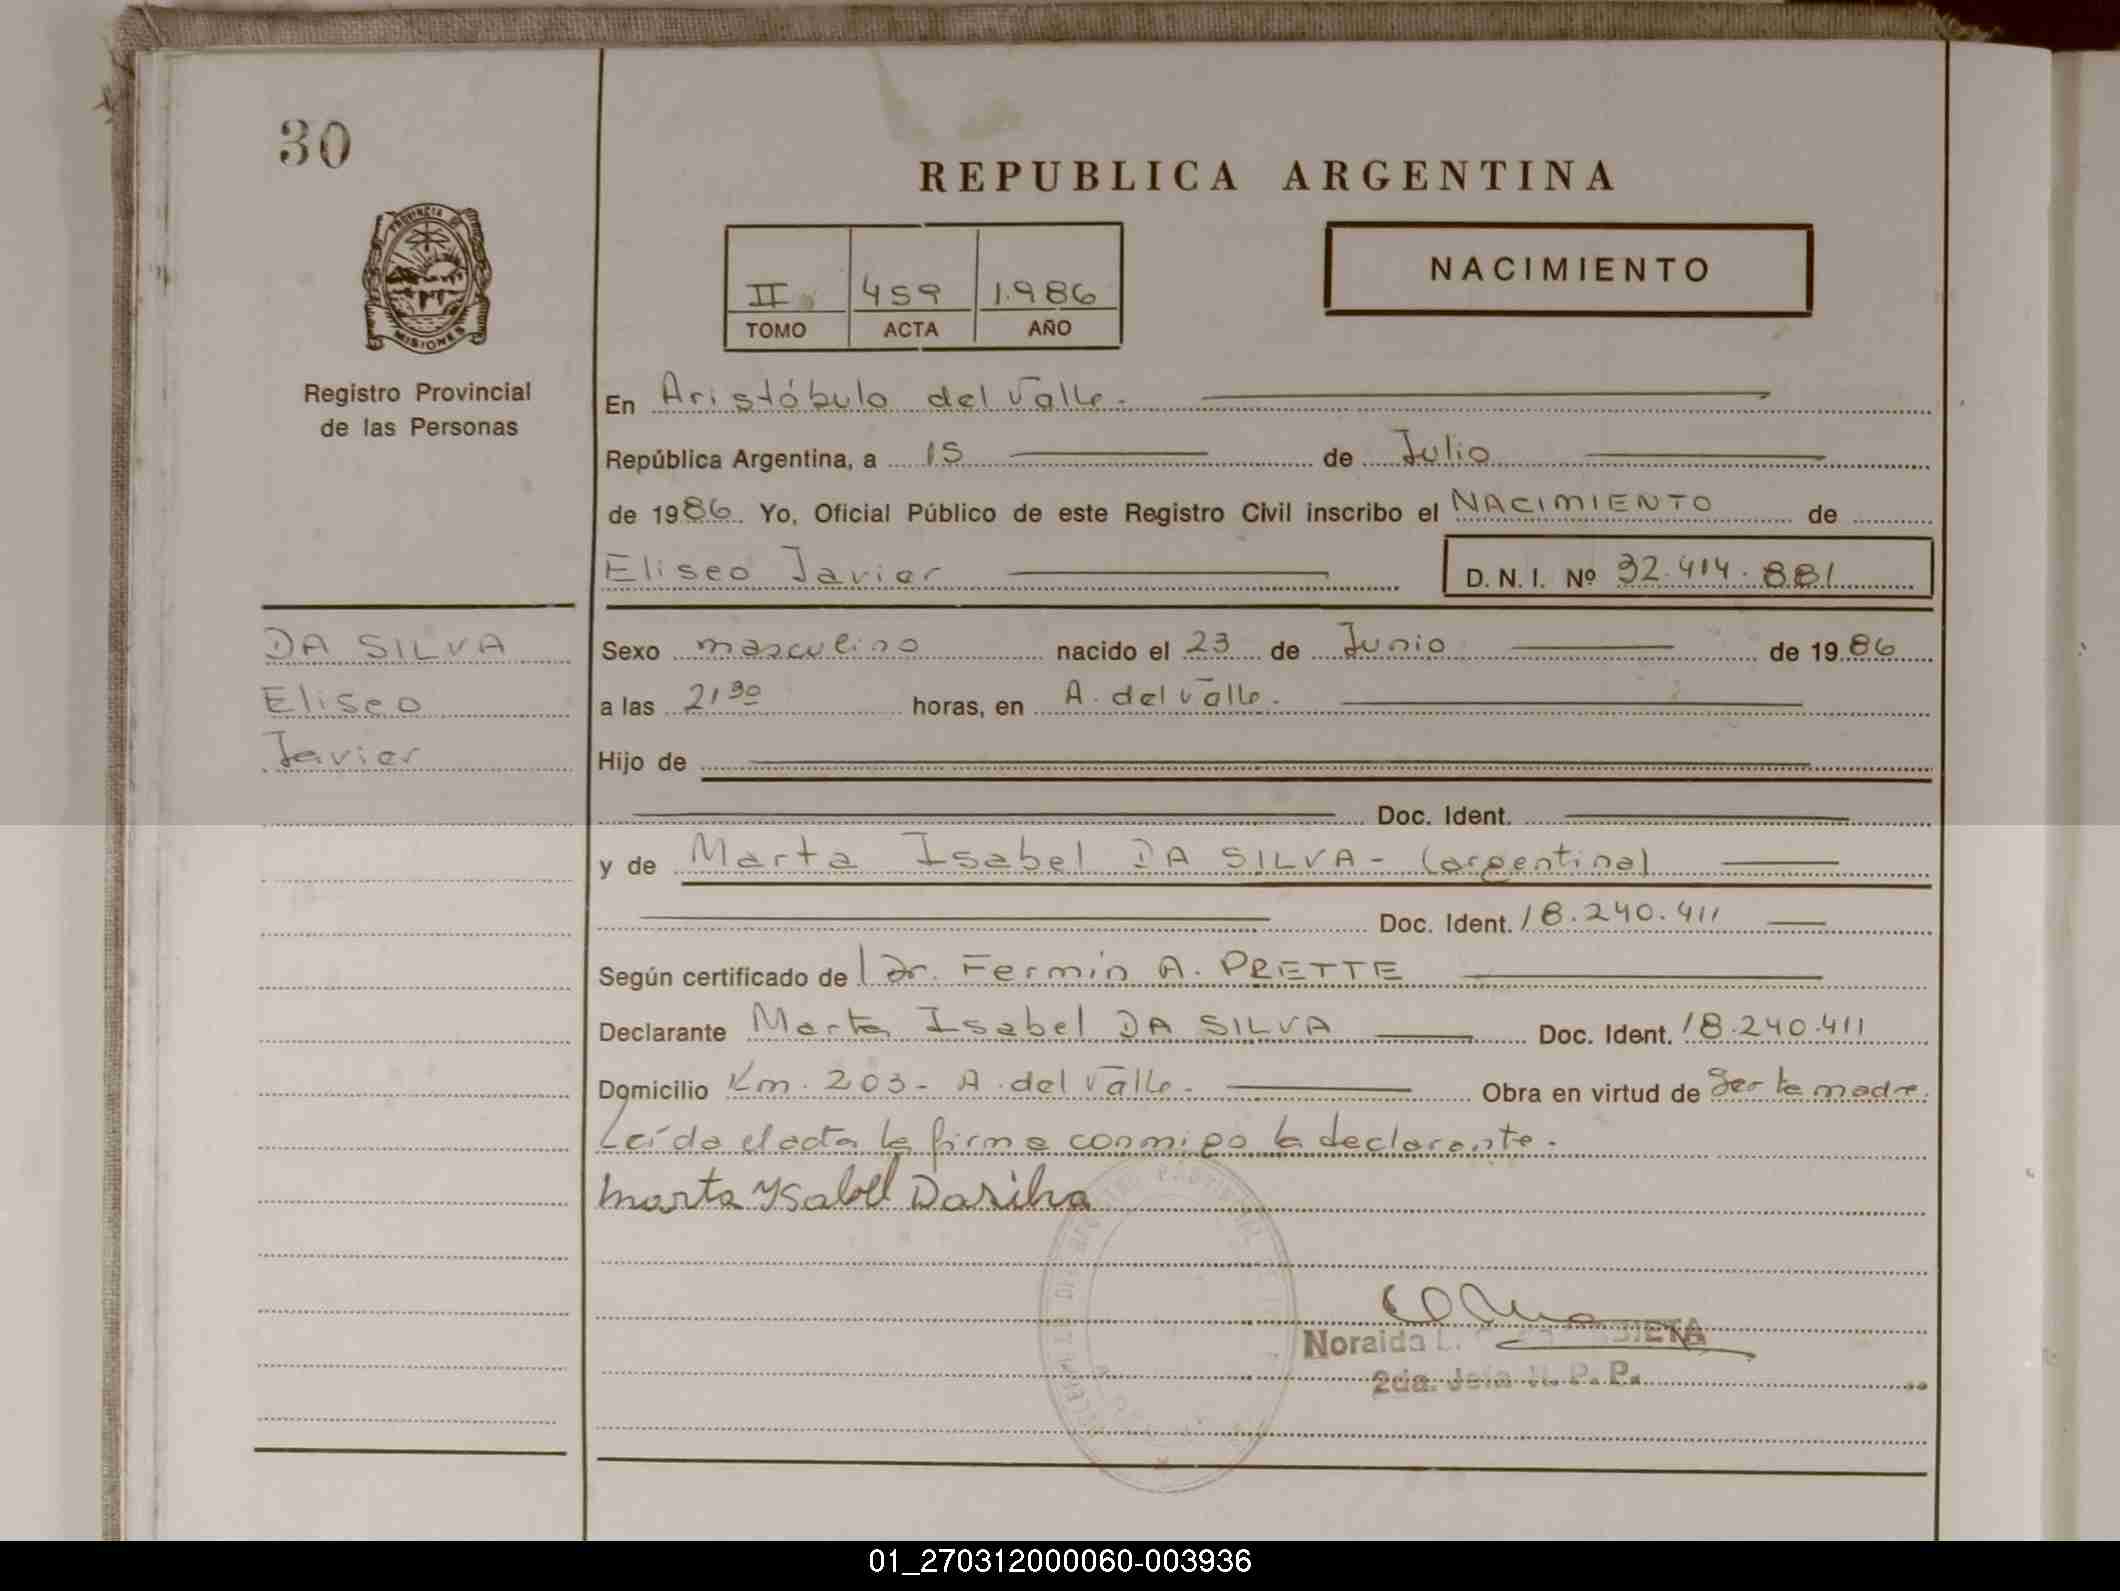 30
REPUBLICA ARGENTINA
PROVINCIA DE
MISIONES
II 459 1.986
TOMO ACTA AÑO
NACIMIENTO
Registro Provincial
de las Personas
En Aristóbulo del Valle.
República Argentina, a 15 de Julio
de 1986. Yo, Oficial Público de este Registro Civil inscribo el NACIMIENTO de
Eliseo Javier D. N. I. Nº 32.414.881
DA SILVA
Eliseo
Javier
Sexo masculino nacido el 23 de Junio de 1986
a las 21 30 horas, en A. del Valle.
Hijo de
Doc. Ident.
y de Marta Isabel DA SILVA - (argentina)
Doc. Ident. 18.240.411
Según certificado de Dr. Fermín A. PRETTE
Declarante Marta Isabel DA SILVA Doc. Ident. 18.240.411
Domicilio Km. 203 - A. del Valle. Obra en virtud de ser la madre.
Leída el acta la firma conmigo la declarante.
Marta Ysabel Dasilva
Noraida L.
2da. Jefa P. P.
01_270312000060-003936